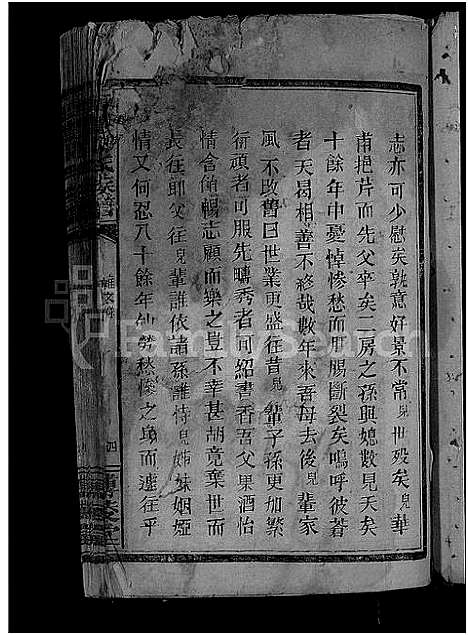 志亦可少慰矣孰意好景不常兒世殁矣兒華
甫挹片而先父卒矣二房之孫與媳數見夭矣
十餘年中憂悼慘愁而肝腸斷裂矣嗚呼彼蒼
者天曷相善不終哉數年來吾母去後兒輩家
風不改舊日世業更盛往昔兒輩子孫更加繁
衍頑者可服先疇秀者可紹書香吾父果酒怡
情含飴暢志顧而樂之豈不幸甚胡竟棄世而
長往耶父往兒輩誰依諸孫誰恃兒姊妹姻婭
情又何忍八十餘年劬勞愁慘之身而遽往乎
氏族譜
四
FamilySearch